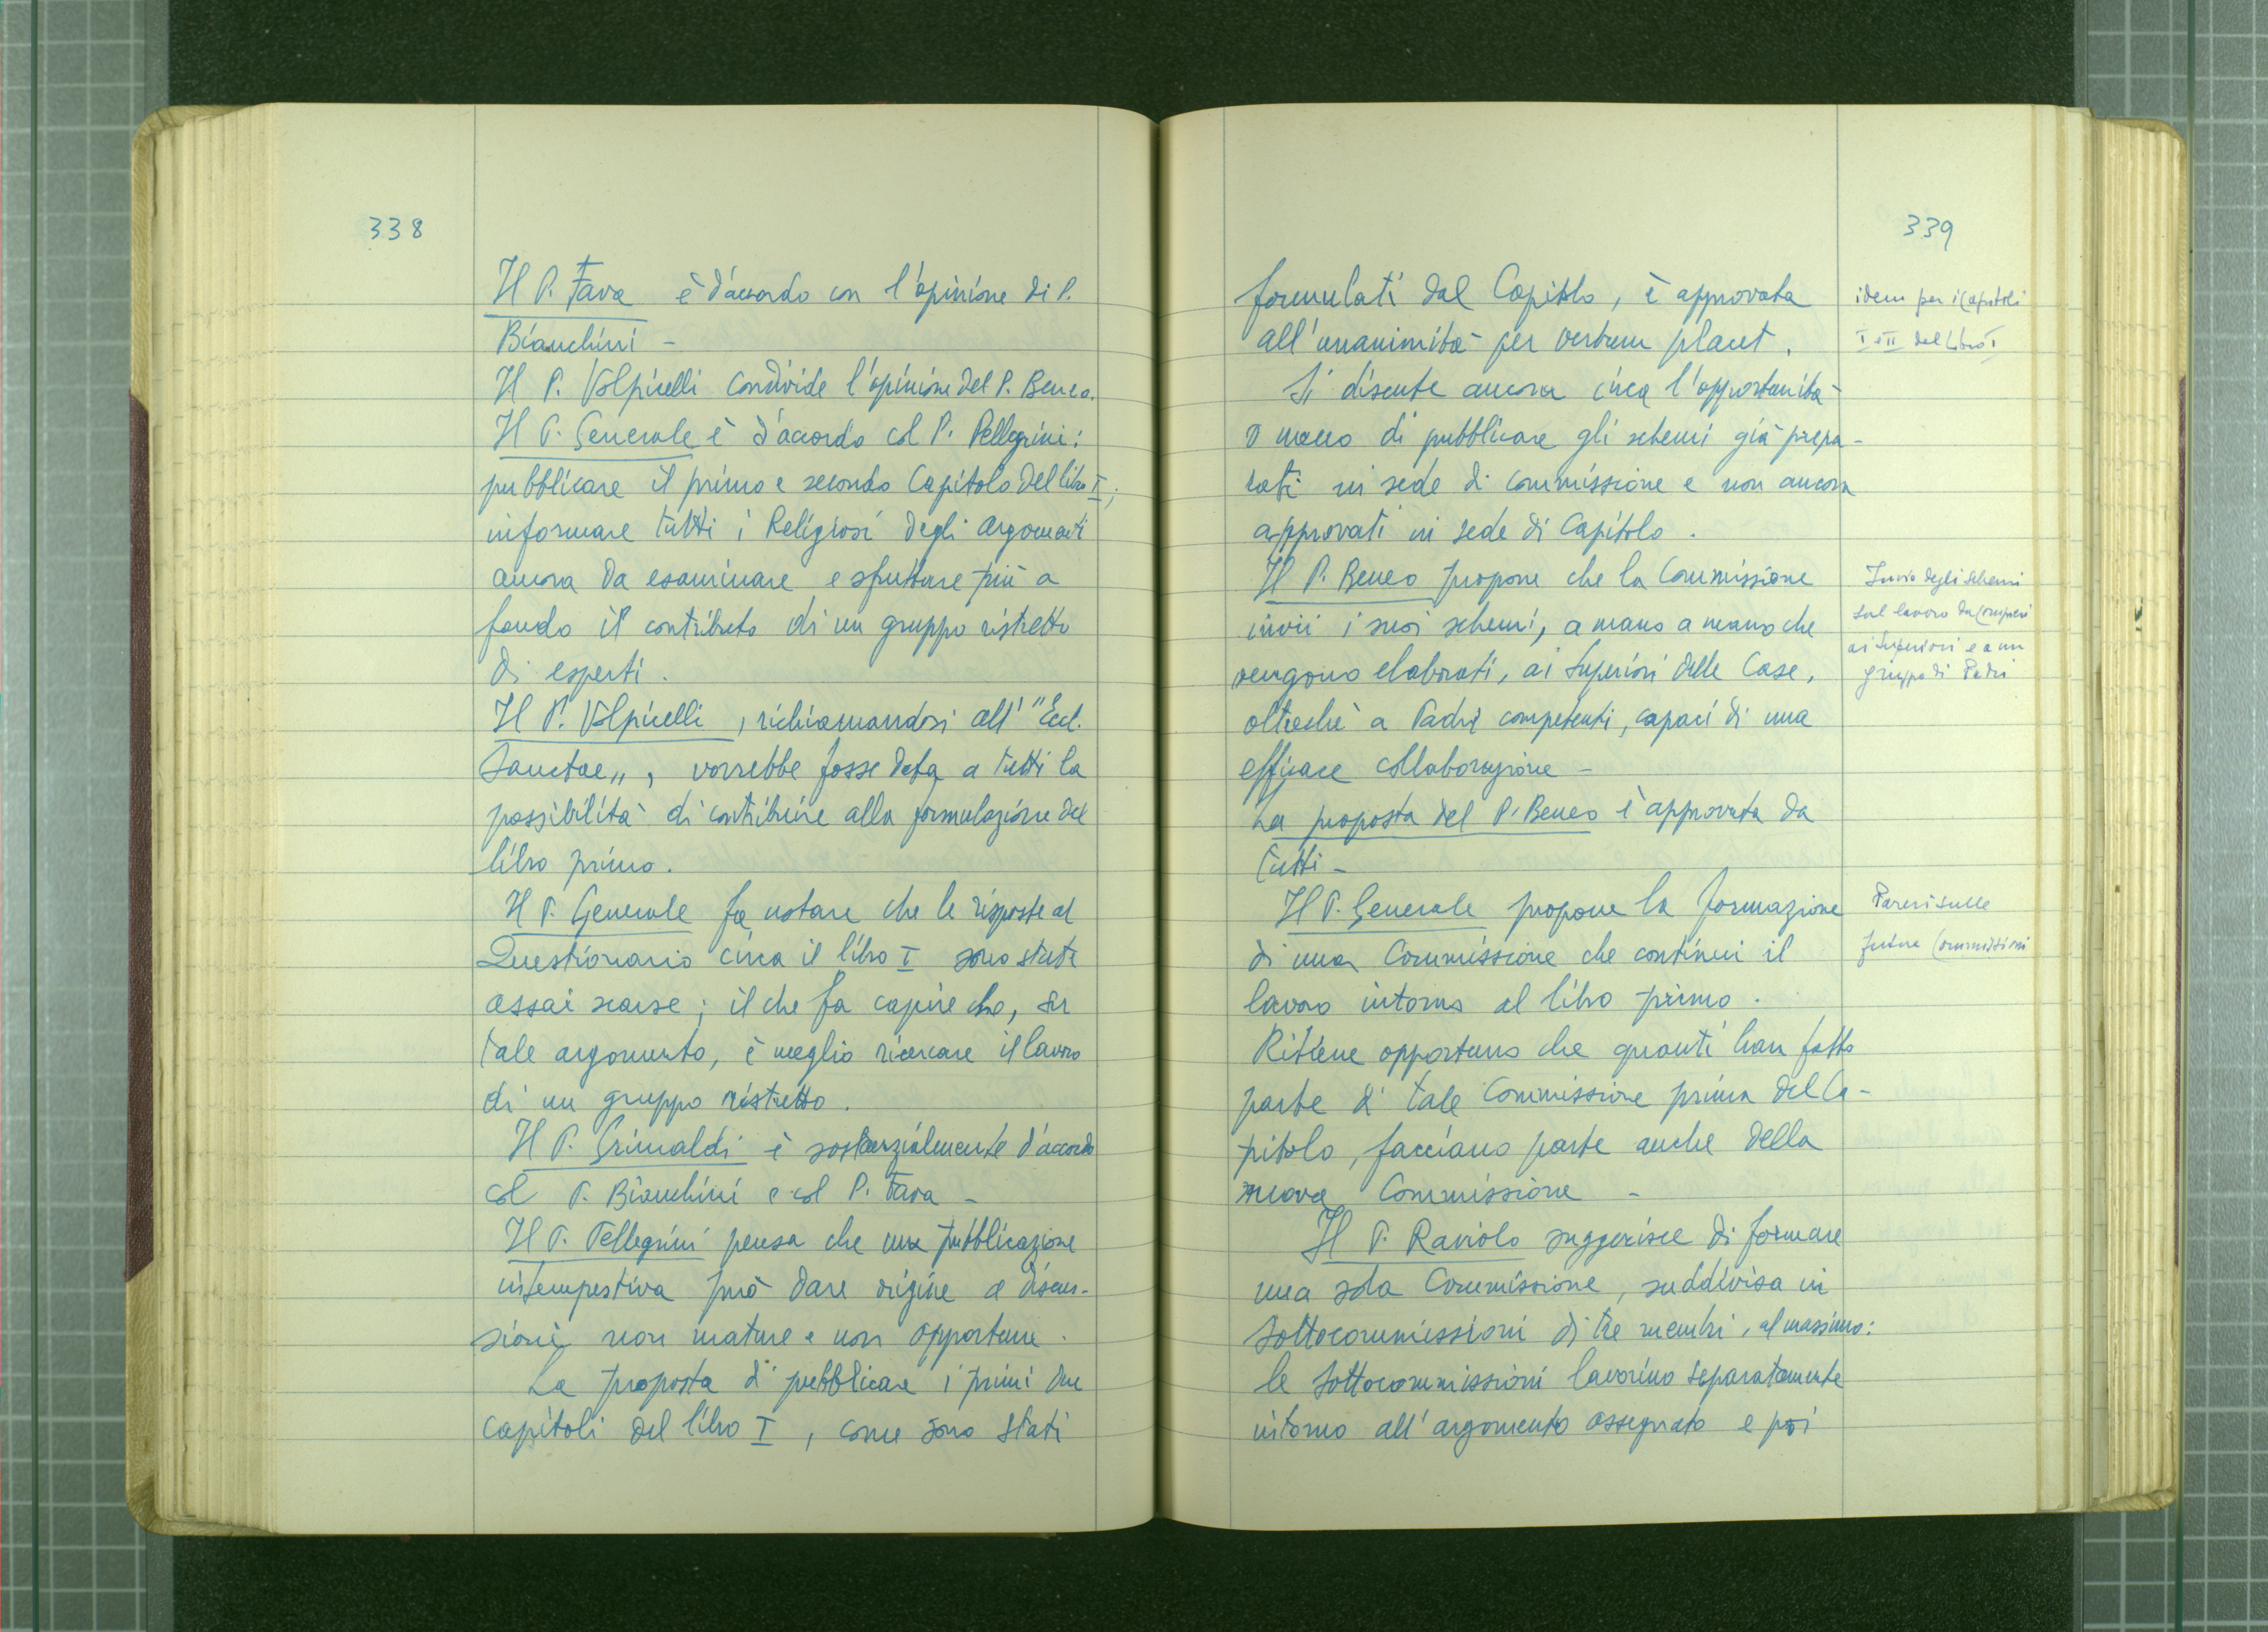 338
Il P. Fava è d'accordo con l'opinione di P.
Bianchini -
Il P. Volpicelli condivide l'opinione del P. Beneo.
Il P. Generale è d'accordo col P. Pellegrini:
pubblicare il primo e secondo Capitolo del libro I;
informare tutti i Religiosi degli argomenti
ancora da esaminare e sfruttare più a
fondo il contributo di un gruppo ristretto
di esperti.
Il P. Volpicelli, richiamandosi all' "Eccl.
Sanctae", vorrebbe fosse data a tutti la
possibilità di contribuire alla formulazione del
libro primo.
Il P. Generale fa notare che le risposte al
Questionario circa il libro I sono state
assai scarse; il che fa capire che, su
tale argomento, è meglio ricercare il lavoro
di un gruppo ristretto.
Il P. Grimaldi è sostanzialmente d'accordo
col P. Bianchini e col P. Fava -
Il P. Pellegrini pensa che una pubblicazione
intempestiva può dare origine a discus-
sioni non mature e non opportune.
La proposta di pubblicare i primi due
capitoli del libro I, come sono stati
339
formulati dal Capitolo, è approvata
all'unanimità per verbum placet.
idem per i Capitoli
I e II del Libro I
Si discute ancora circa l'opportunità
o meno di pubblicare gli schemi già prepa-
rati in sede di commissione e non ancora
approvati in sede di Capitolo.
Il P. Beneo propone che la Commissione
invii i suoi schemi, a mano a mano che
vengono elaborati, ai Superiori delle Case,
oltreché a Padri competenti, capaci di una
efficace collaborazione -
Invio degli schemi
sul lavoro da compiersi
ai Superiori e a un
gruppo di Padri
La proposta del P. Beneo è approvata da
tutti -
Il P. Generale propone la formazione
di una Commissione che continui il
lavoro intorno al libro primo.
Pareri sulle
future Commissioni
Ritiene opportuno che quanti han fatto
parte di tale Commissione prima del Ca-
pitolo, facciano parte anche della
nuova Commissione -
Il P. Raviolo suggerisce di formare
una sola Commissione, suddivisa in
Sottocommissioni di tre membri, al massimo:
le Sottocommissioni lavorino separatamente
intorno all'argomento assegnato e poi